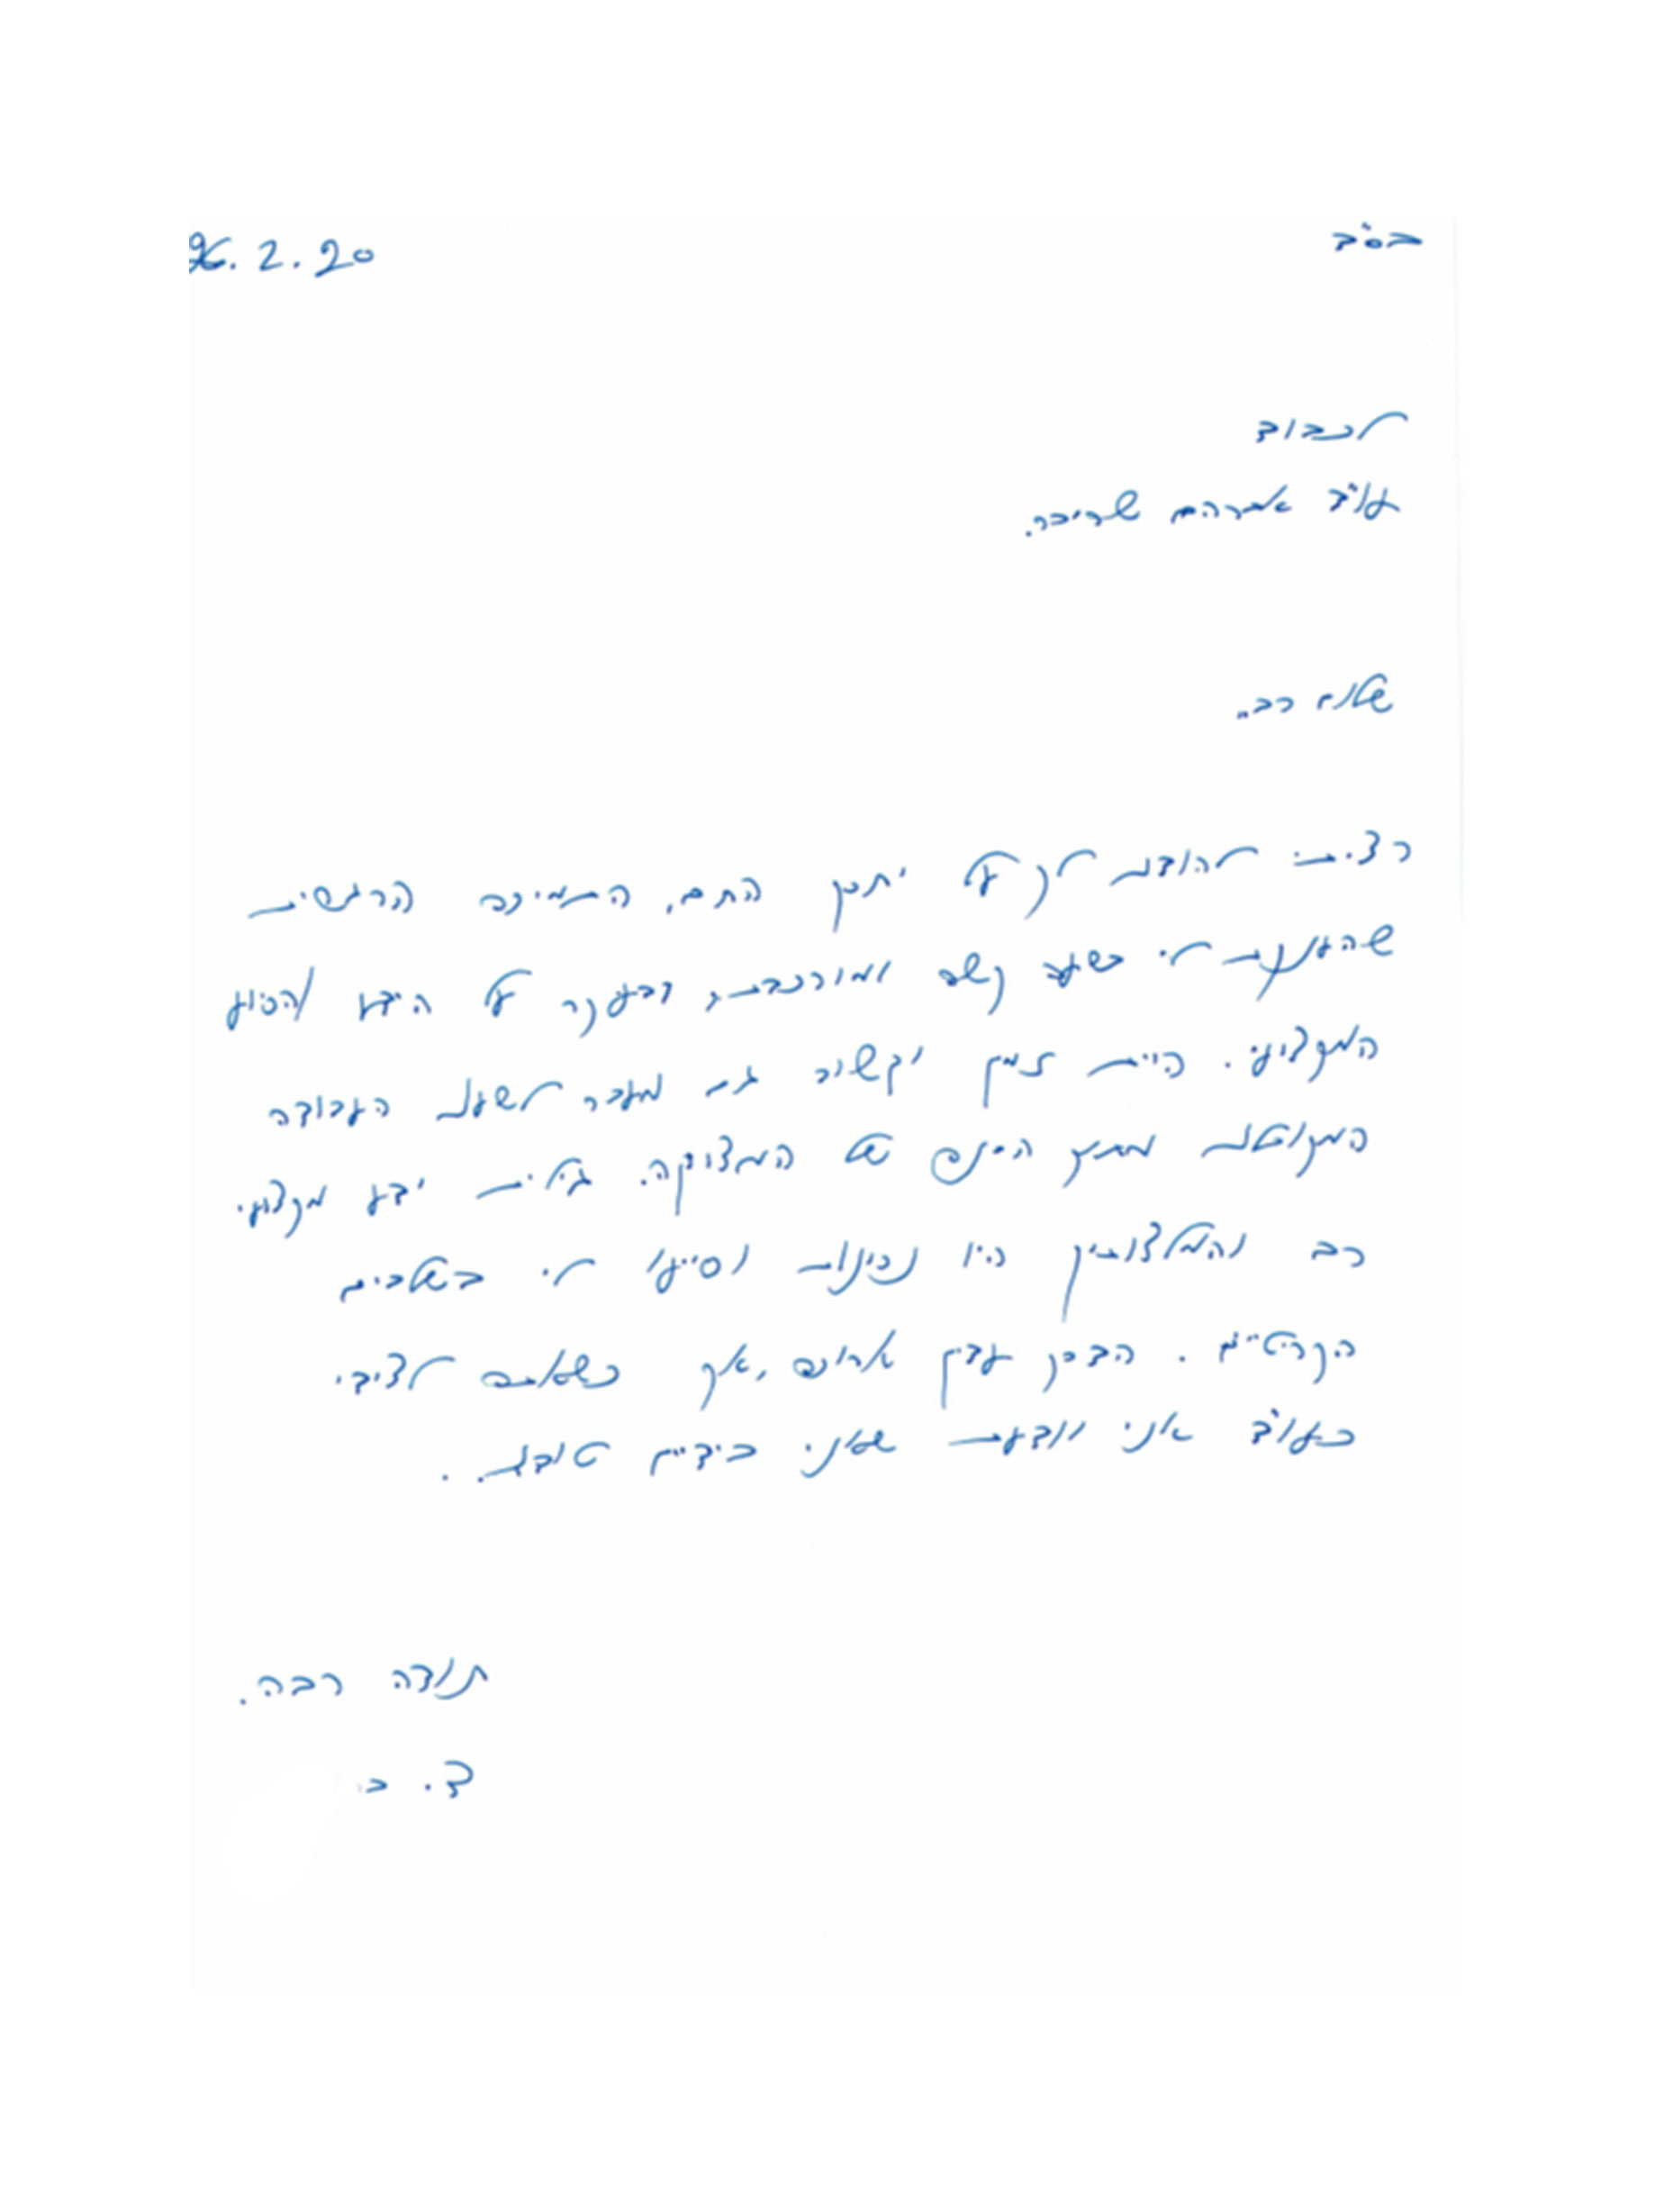 בס"ד 26.2.20
לכבוד
עו"ד אברהם שריבר.
שלום רב.
רציתי להודות לך על יחסך החם, התמיכה הרגשית
שהענקת לי בשעה קשה ומורכבת, ובעיקר על הידע והסיוע
המקצועי. היית זמין וקשוב גם מעבר לשעות העבודה
המקובלות מתוך הבנה של המצוקה. גילית ידע מקצועי
רב והמלצותיך היו נכונות וסייעו לי בשלבים
הקריטיים. הדרך עדיין ארוכה, אך כשאתה לצידי
כעו"ד אני יודעת שאני בידיים טובות.
תודה רבה.
צ.